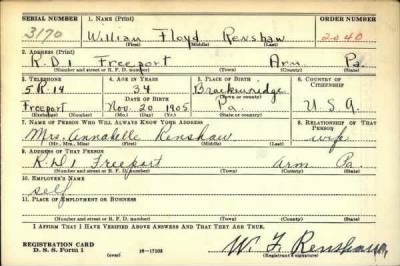 SERIAL NUMBER 1. NAME (Print) ORDER NUMBER
3170 William Floyd Renshaw 2040
(First) (Middle) (Last)
2. ADDRESS (Print)
R.D1 Freeport Arm Pa.
(Number and street or R. F. D. number) (Town) (County) (State)
3. TELEPHONE 4. AGE IN YEARS 5. PLACE OF BIRTH 6. COUNTRY OF CITIZENSHIP
5R14 34 Brackenridge
DATE OF BIRTH
Freeport Nov. 20 1905 Pa. U.S.A
(Exchange) (Number) (Mo.) (Day) (Yr.) (State or country)
7. NAME OF PERSON WHO WILL ALWAYS KNOW YOUR ADDRESS 8. RELATIONSHIP OF THAT PERSON
Mrs. Annabelle Renshaw wife
(Mr., Mrs., Miss) (First) (Middle) (Last)
9. ADDRESS OF THAT PERSON
R.D1 Freeport Arm Pa.
(Number and street or R. F. D. number) (Town) (County) (State)
10. EMPLOYER'S NAME
self
11. PLACE OF EMPLOYMENT OR BUSINESS
(Number and street or R. F. D. number) (Town) (County) (State)
I AFFIRM THAT I HAVE VERIFIED ABOVE ANSWERS AND THAT THEY ARE TRUE.
REGISTRATION CARD
D. S. S. Form 1 (over) 16—17105 W. F. Renshaw
(Registrant's signature)